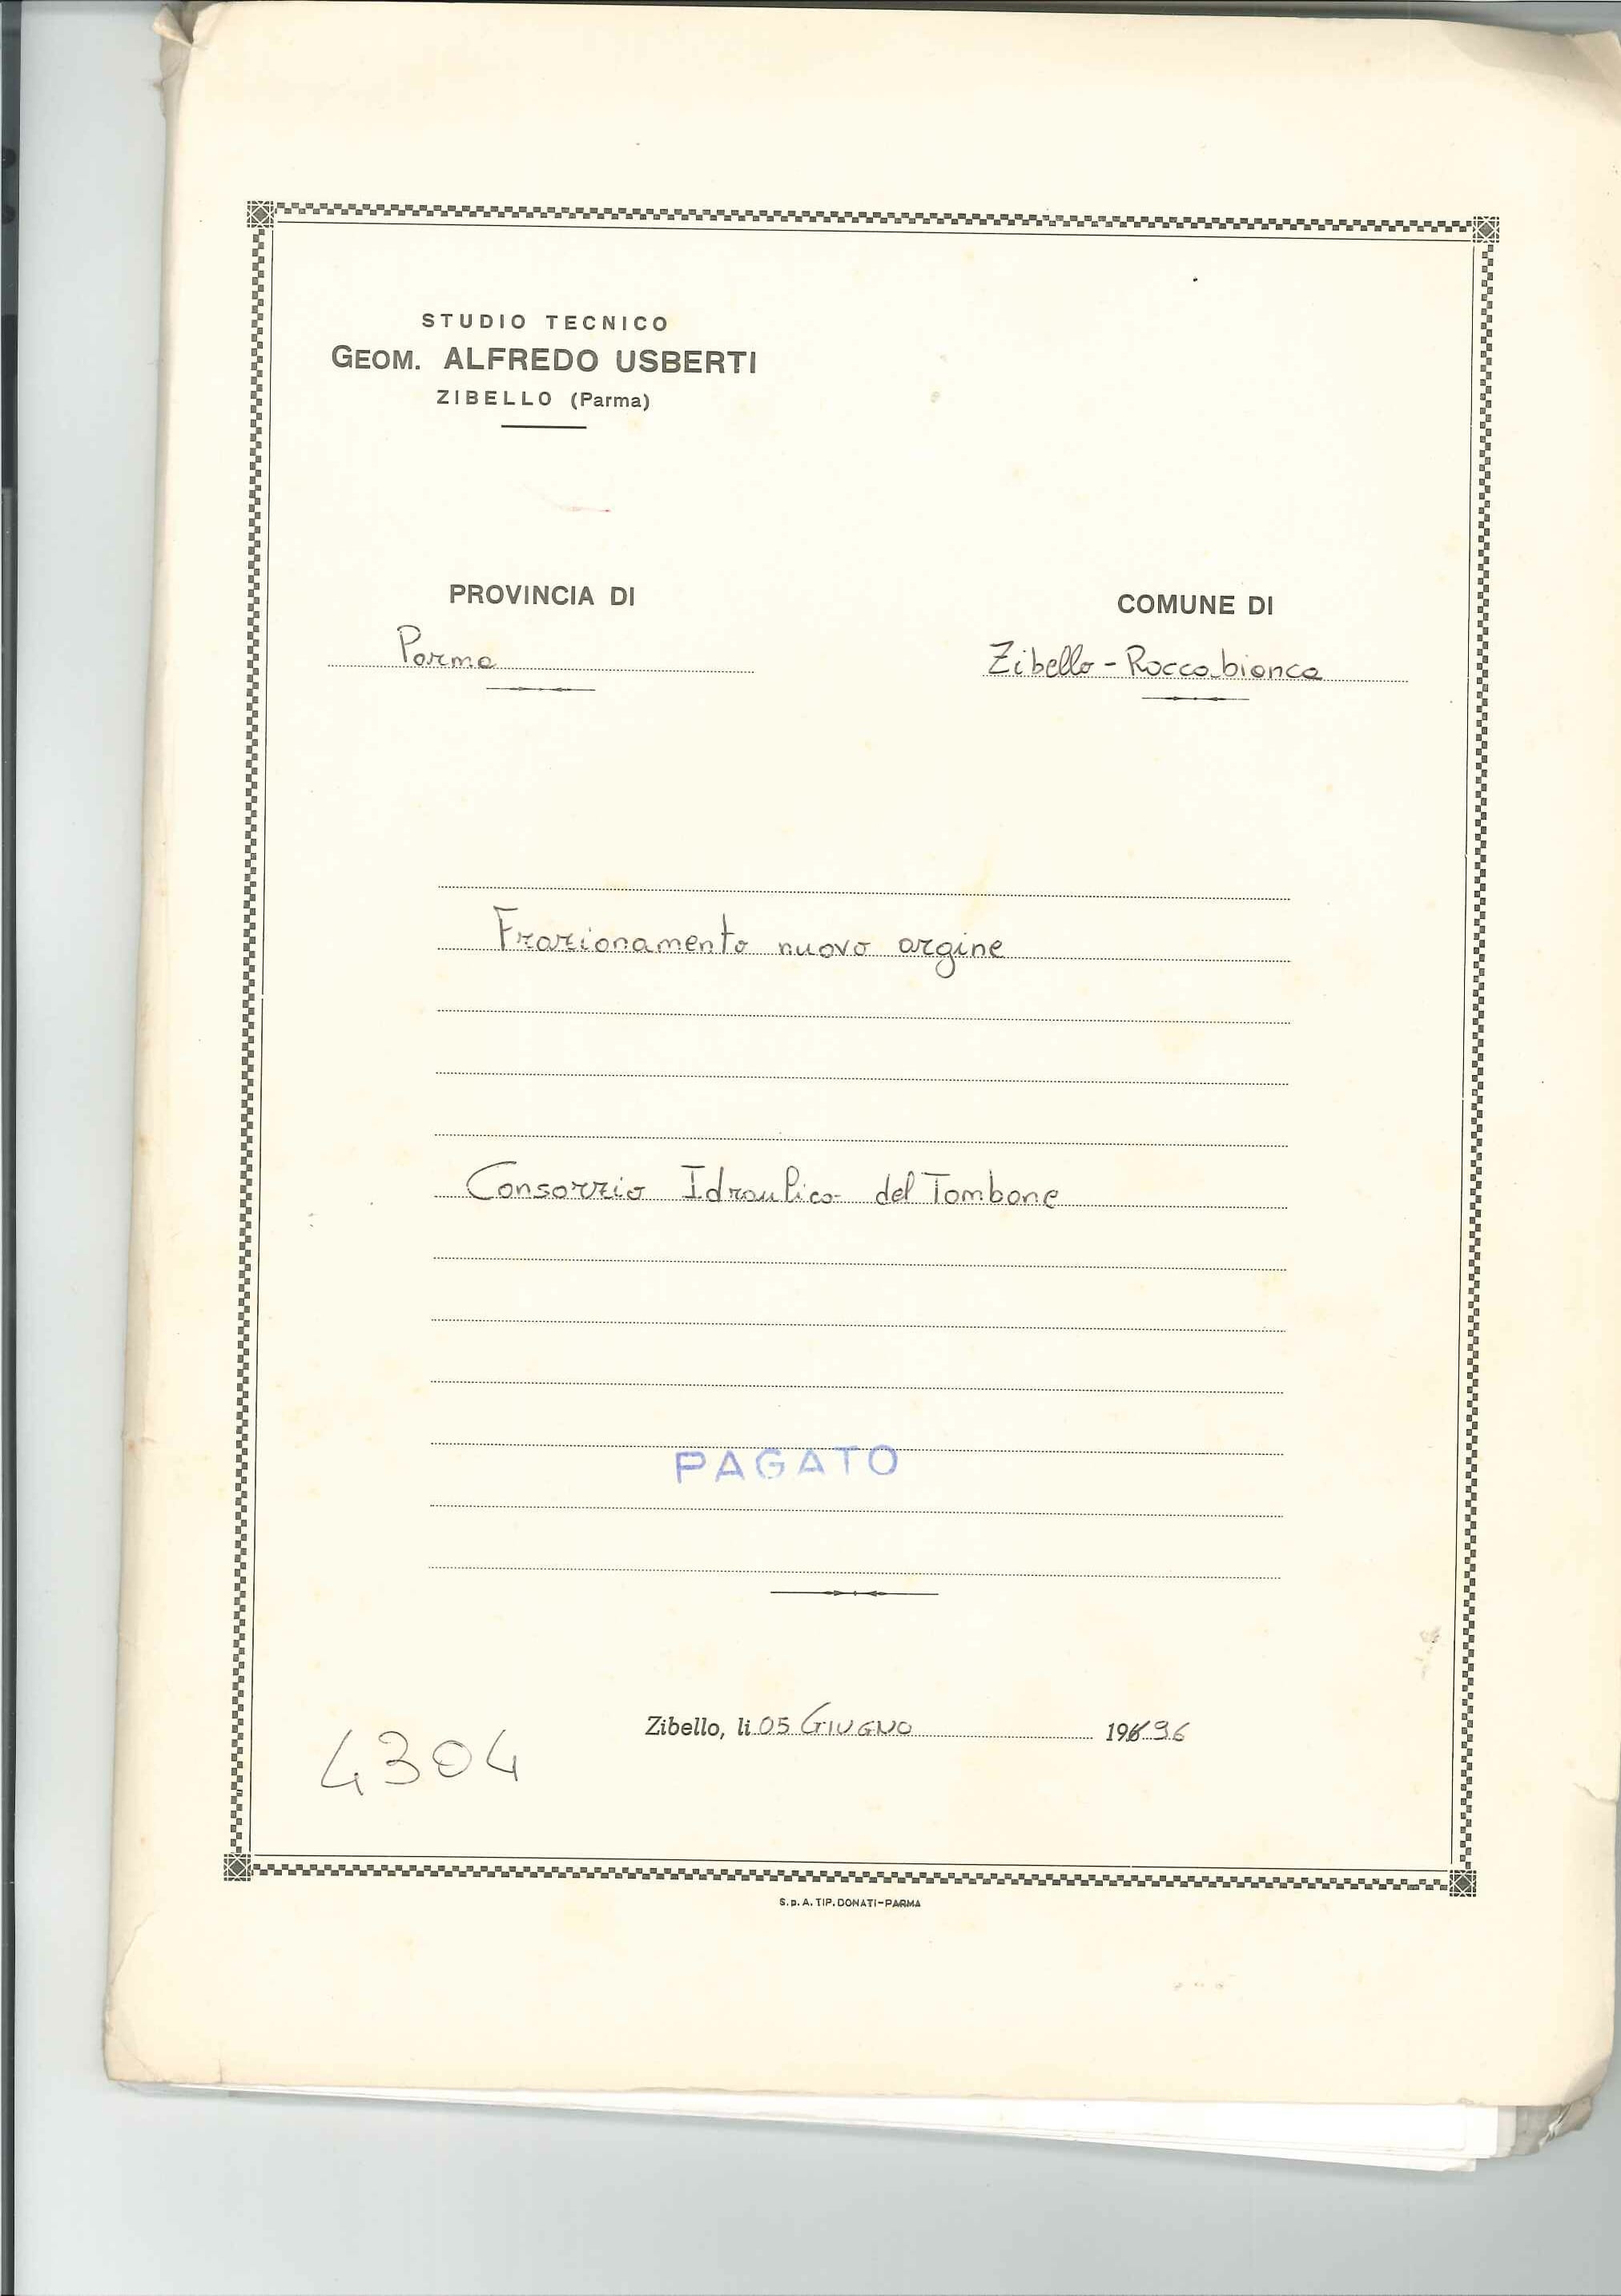 STUDIO TECNICO
GEOM. ALFREDO USBERTI
ZIBELLO (Parma)
PROVINCIA DI
Parma
COMUNE DI
Zibello - Roccabianca
Frazionamento nuovo argine
Consorzio Idraulico del Tombone
PAGATO
Zibello, li 05 GIUGNO 19696
4304
S.p.A. TIP. DONATI-PARMA